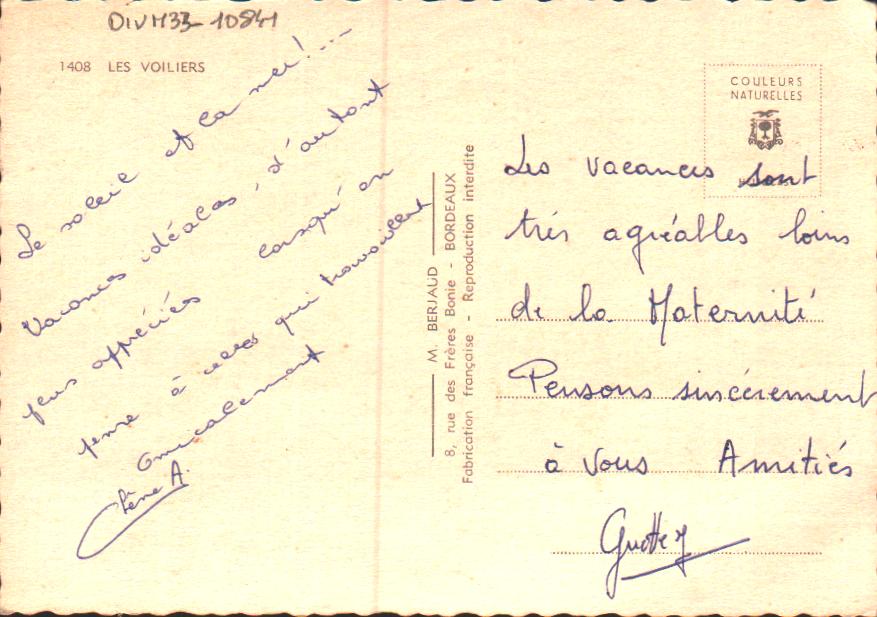 DIVH33-10841
1408 LES VOILIERS
Le soleil et la mer!...
Vacances idéales, d'autant
plus appréciés lorsqu'on
pense à celles qui travaillent
amicalement
A.
M. BERJAUD
8, rue des Frères Bonie - BORDEAUX
Fabrication française - Reproduction interdite
COULEURS
NATURELLES
Les vacances sont
très agréables loins
de la Maternité
Pensons sincérement
à vous Amitiés